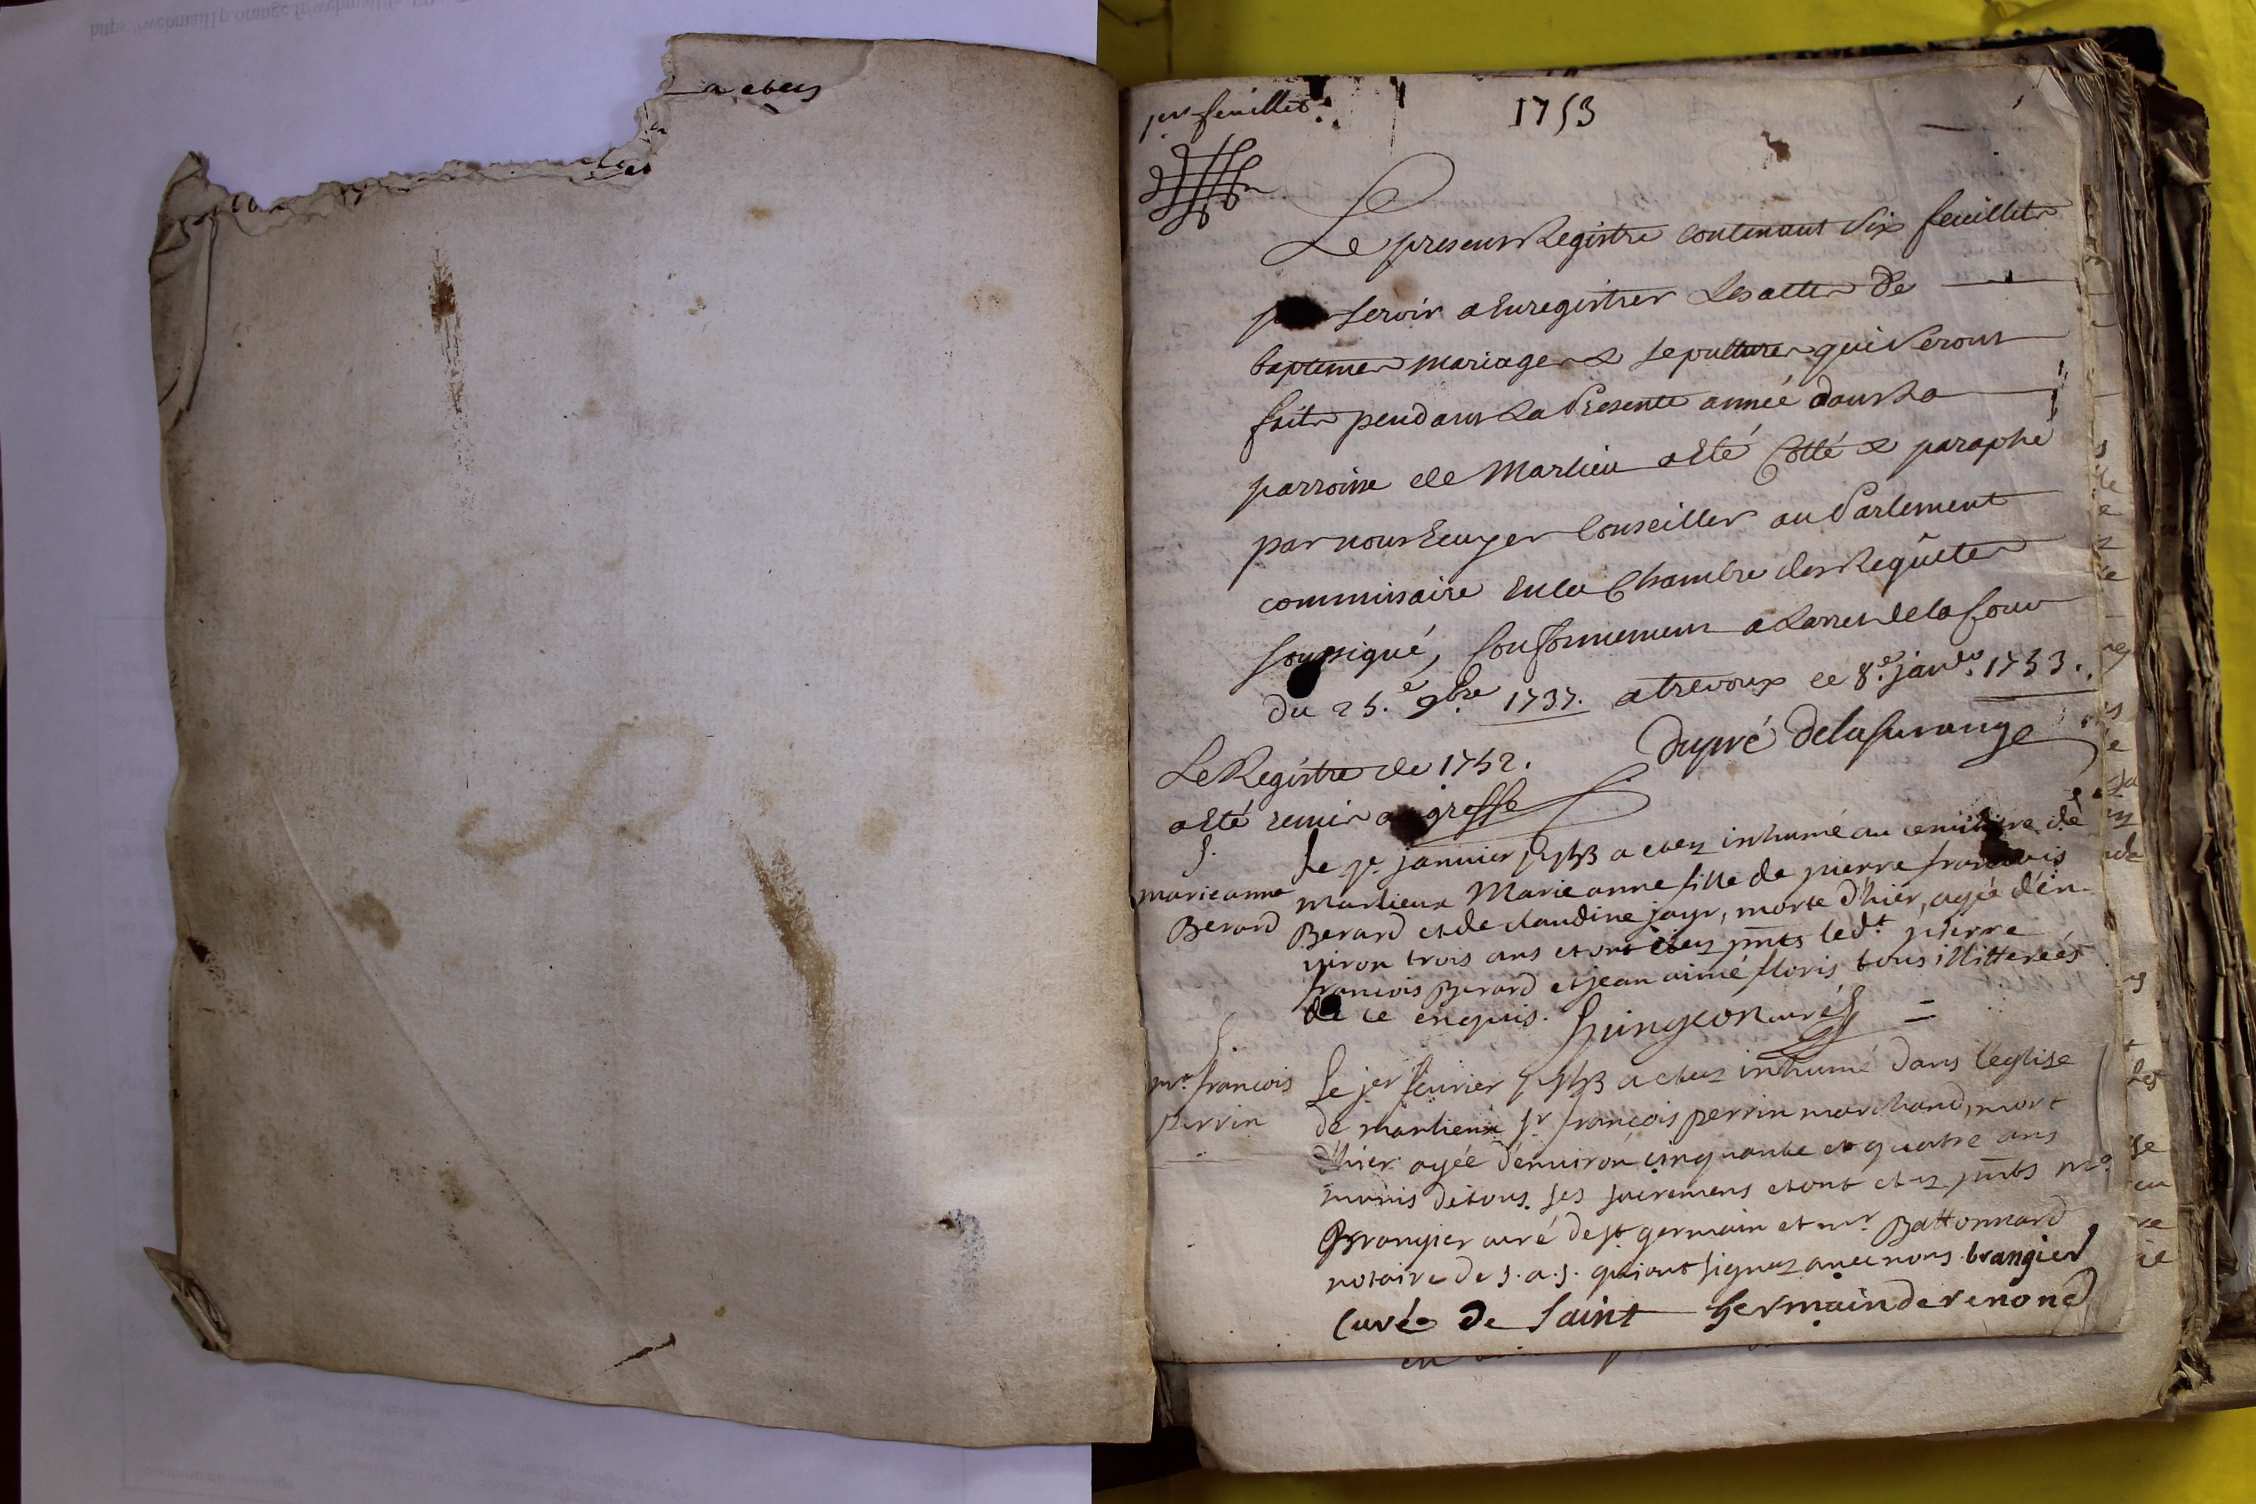 a etez
1er feuillet.
1753
Le present Registre contenant Six feuillets
pour servir a Enregistrer Les actes de
baptemes mariages & sepultures qui Seront
faits pendant La Presente année dans La
parroisse de Marlieu a Eté Cotté & paraphé
par nous Ecuyer Conseiller au Parlement
commissaire En la Chambre des Requêtes
soussigné, Conformement a L'arret de la Cour
du 25.e 9bre 1737. a trevoux ce 8.e janer. 1753.
Le Registre de 1752.
dupré
a Eté remis au greffe
S.
marie anne
Berard
Le 7e janvier 1753 a etez inhumé au cemitiere de
marlieux Marie anne fille de pierre francois
Berard et de claudine jayr, morte d'hier, agée d'en-
viron trois ans et ont etez pnts led.t pierre
francois Berard et jean aimé floris tous illitterées
de ce enquis. curé
S.
mr. francois
perrin
Le jer fevrier 1753 a etez inhumé dans l'eglise
de marlieux Sr françois perrin marchand, mort
d'hier agée d'environ cinquante et quatre ans
munis de tous ses sacremens et ont etez pnts mr.
Brangier curé de St germain et mr. Battonnard
notaire de s. a. s. qui ont signez avec nous. brangier
Curé de Saint germain de renon